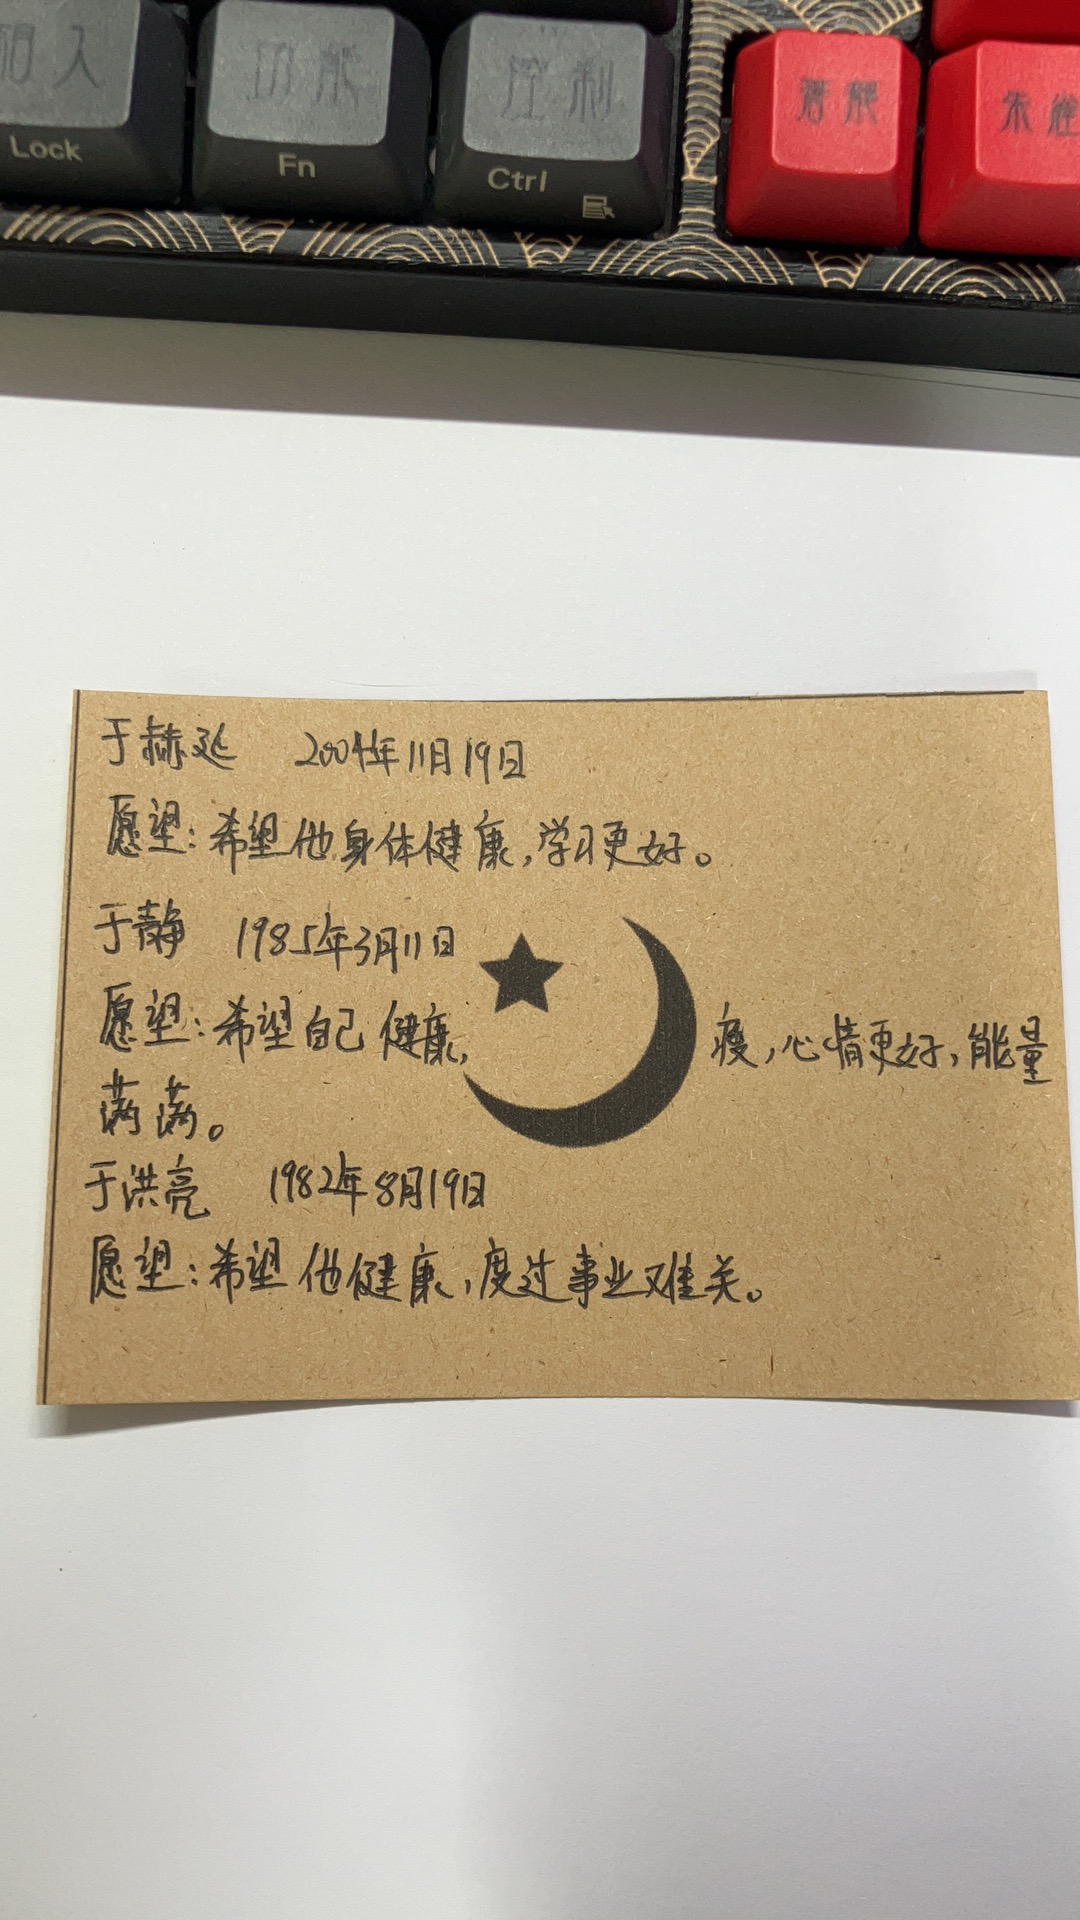 加入
Lock
功能
Fn
控制
Ctrl
于赫延 2004年11月19日
愿望：希望他身体健康，学习更好。
于静 1985年3月11日
愿望：希望自己健康， 瘦，心情更好，能量
满满。
于洪亮 1982年8月19日
愿望：希望他健康，度过事业难关。